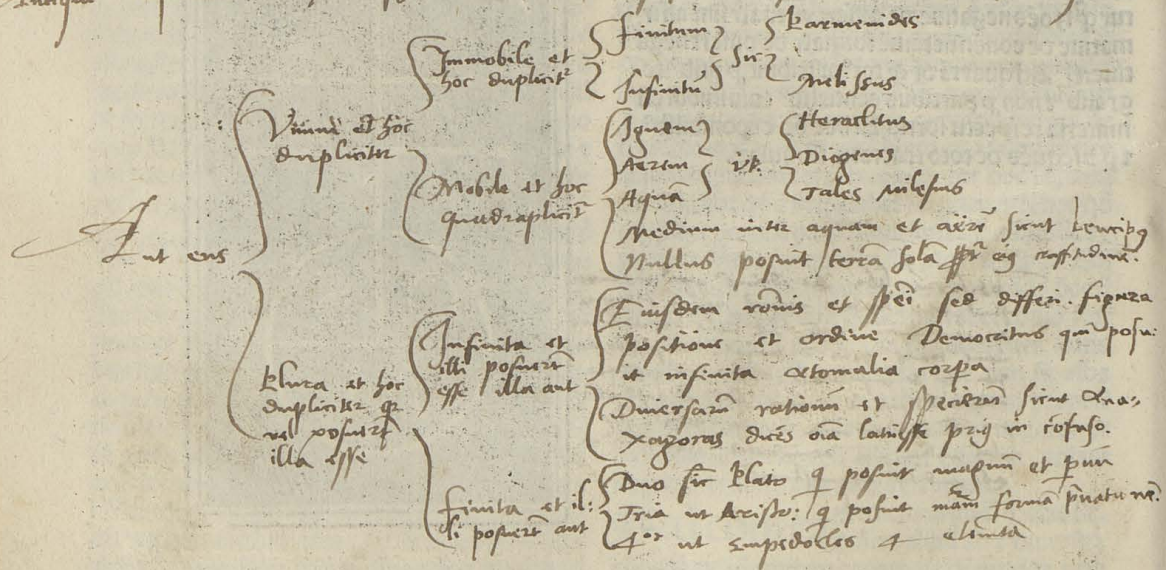 Aut ens
Vnum et hoc
dupliciter
Immobile et
hoc duplicitr
Finitum
Infinitū
sic
Parmenides
Melissus
Mobile et hoc
quadruplicitr
Ignem
Aerem
Aquā
vt
Heraclitus
Diogenes
Tales milesius
Medium inter aquam et aerē sicut Leucipus
Nullus posuit terrā solā ppr eius crassitudinē.
Plura et hoc
dupliciter qr
vel posuerūt
illa esse
Infinita et
illi posuerūt
esse illa aut
Eiusdem rōnis et spēi sed differ. figura
positione et ordine Democritus qui posu:
it infinita atomalia corpa
Diuersarū rationū et specierum sicut Ana-
xagoras dicēs oīa latuisse prius in cōfuso.
Finita et il:
li posuerūt aut
Duo sic Plato qi posuit magnū et paruū
Tria ut Aristo: qi posuit mām formā priuationē.
4or ut Empedocles 4 elemētā